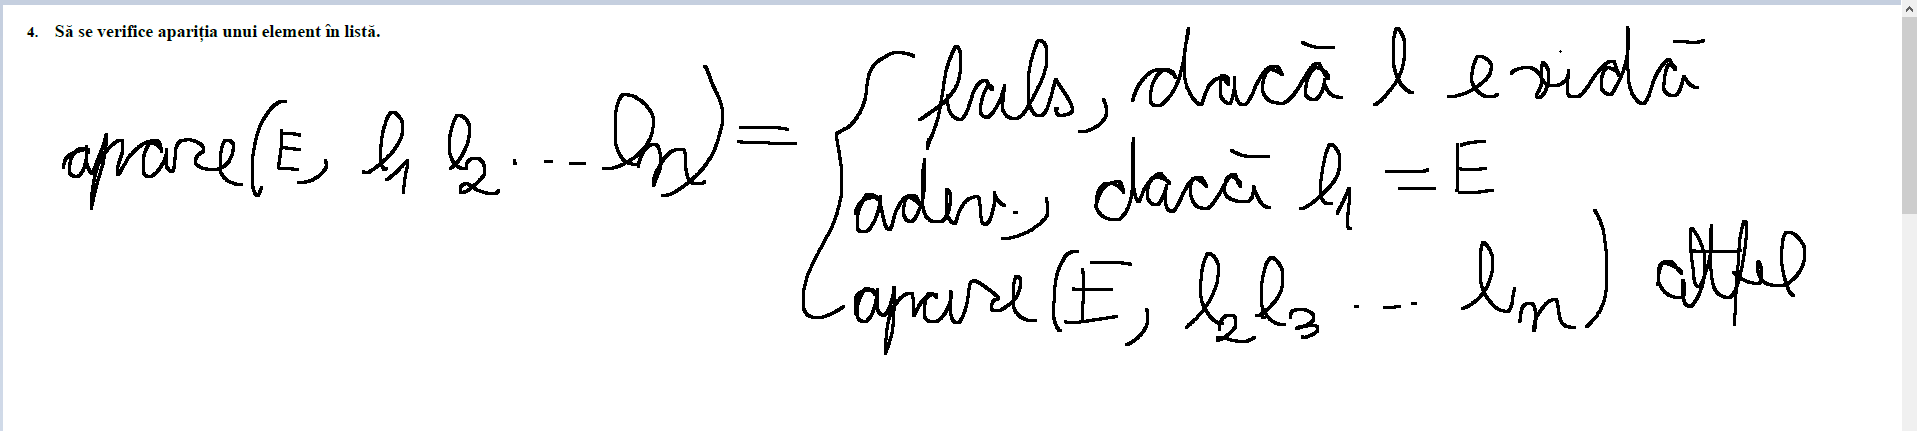 4. Să se verifice apariția unui element în listă.
apare(E, l1 l2 ... ln) = { fals, dacă l e vidă
adev., dacă l1 = E
apare(E, l2 l3 ... ln) altfel